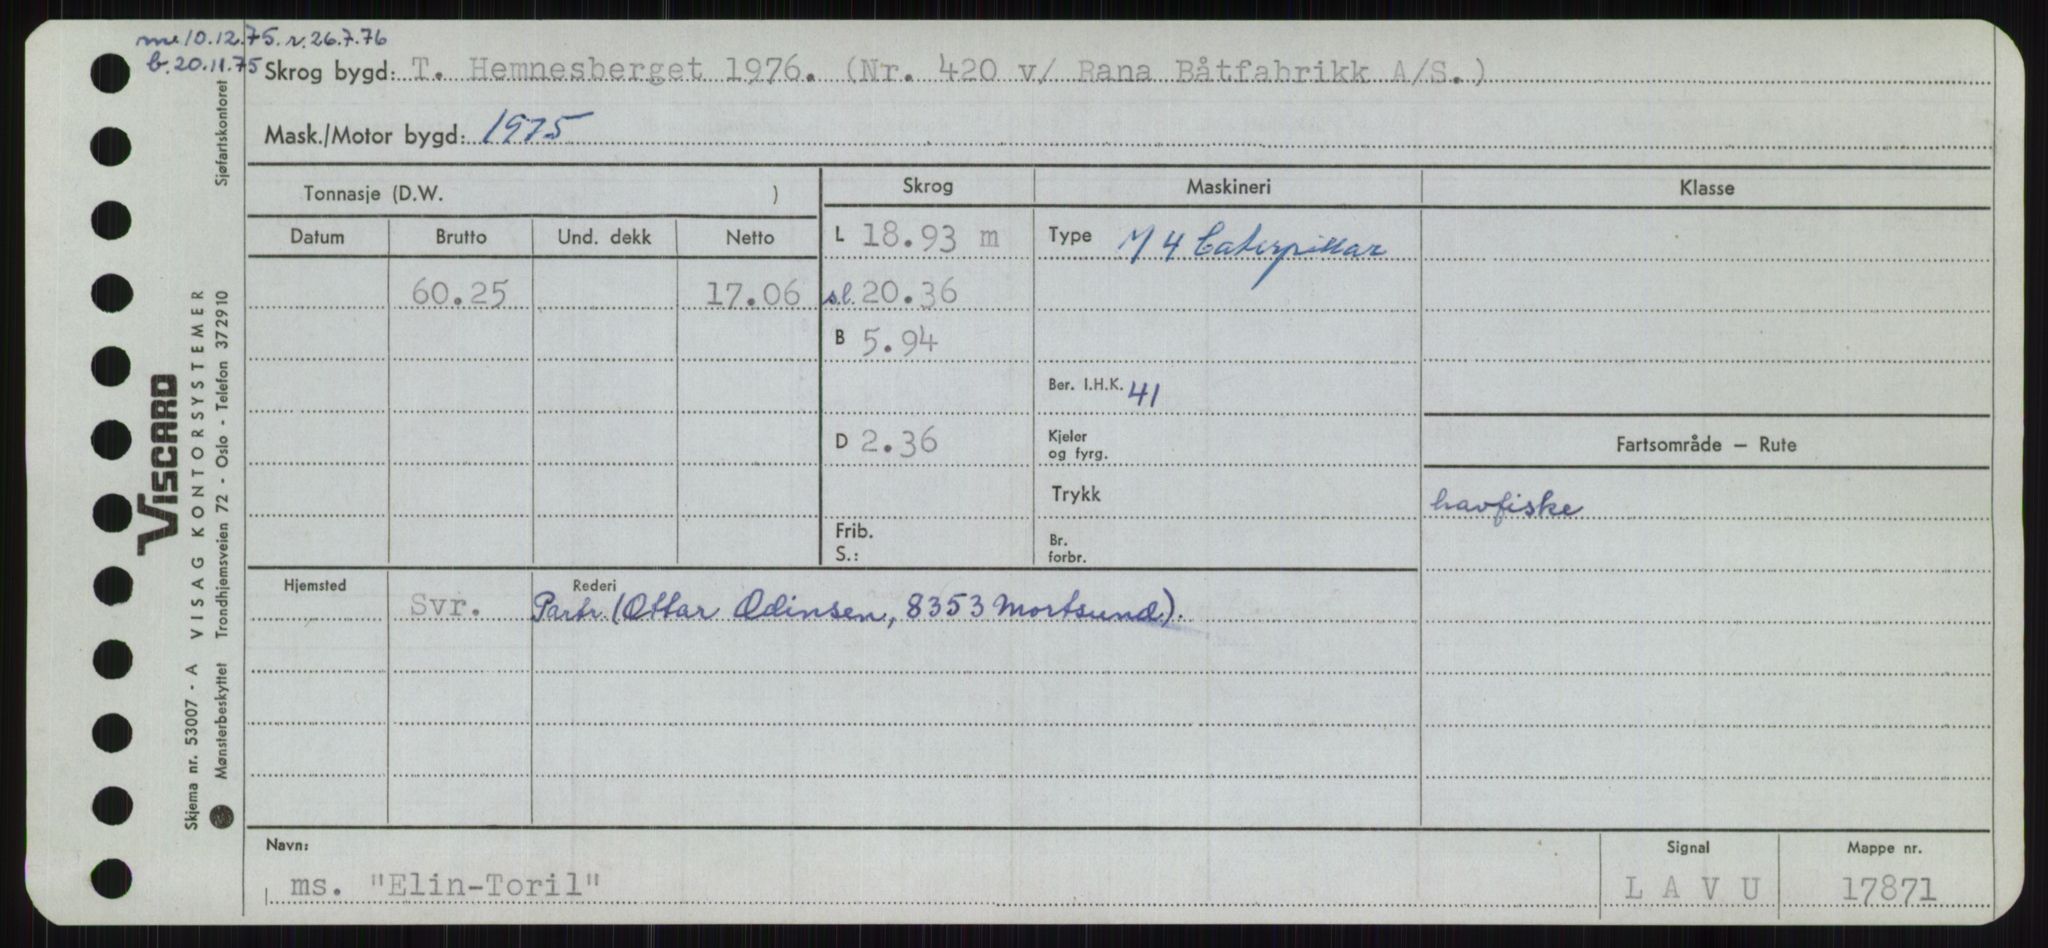 me 10.12.75. r. 26.7.76
b. 20.11.75
Skrog bygd: T. Hemnesberget 1976. (Nr. 420 v/ Rana Båtfabrikk A/S.)
Mask./Motor bygd: 1975
Tonnasje (D.W. )
Skrog Maskineri Klasse
Datum Brutto Und. dekk Netto
L 18.93 m Type M 4 Caterpillar
60.25 17.06 s.l. 20.36
B 5.94
Ber. I.H.K. 41
D 2.36 Kjeler og fyrg.
Fartsområde – Rute
Trykk
havfiske
Frib. S.:
Br. forbr.
Hjemsted Rederi
Svr. Partr. (Ottar Odinsen, 8353 Mortsund).
Navn: Signal Mappe nr.
ms. "Elin-Toril" L A V U 17871
VISCARD
Skjema nr. 53007 - A VISAG KONTORSYSTEMER
Mønsterbeskyttet Trondhjemsveien 72 - Oslo - Telefon 372910 Sjøfartskontoret